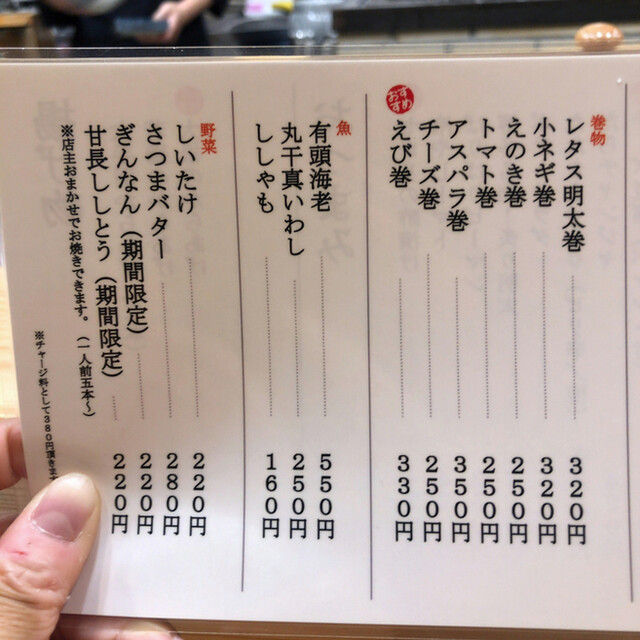 巻物
レタス明太巻 320円
小ネギ巻 320円
えのき巻 250円
トマト巻 250円
アスパラ巻 350円
チーズ巻 250円
おすすめ
えび巻 330円
魚
有頭海老 550円
丸干真いわし 250円
ししゃも 160円
野菜
しいたけ 220円
さつまバター 280円
ぎんなん(期間限定) 220円
甘長ししとう(期間限定) 220円
※店主おまかせでお焼きできます。(一人前五本〜)
※チャージ料として380円頂きます